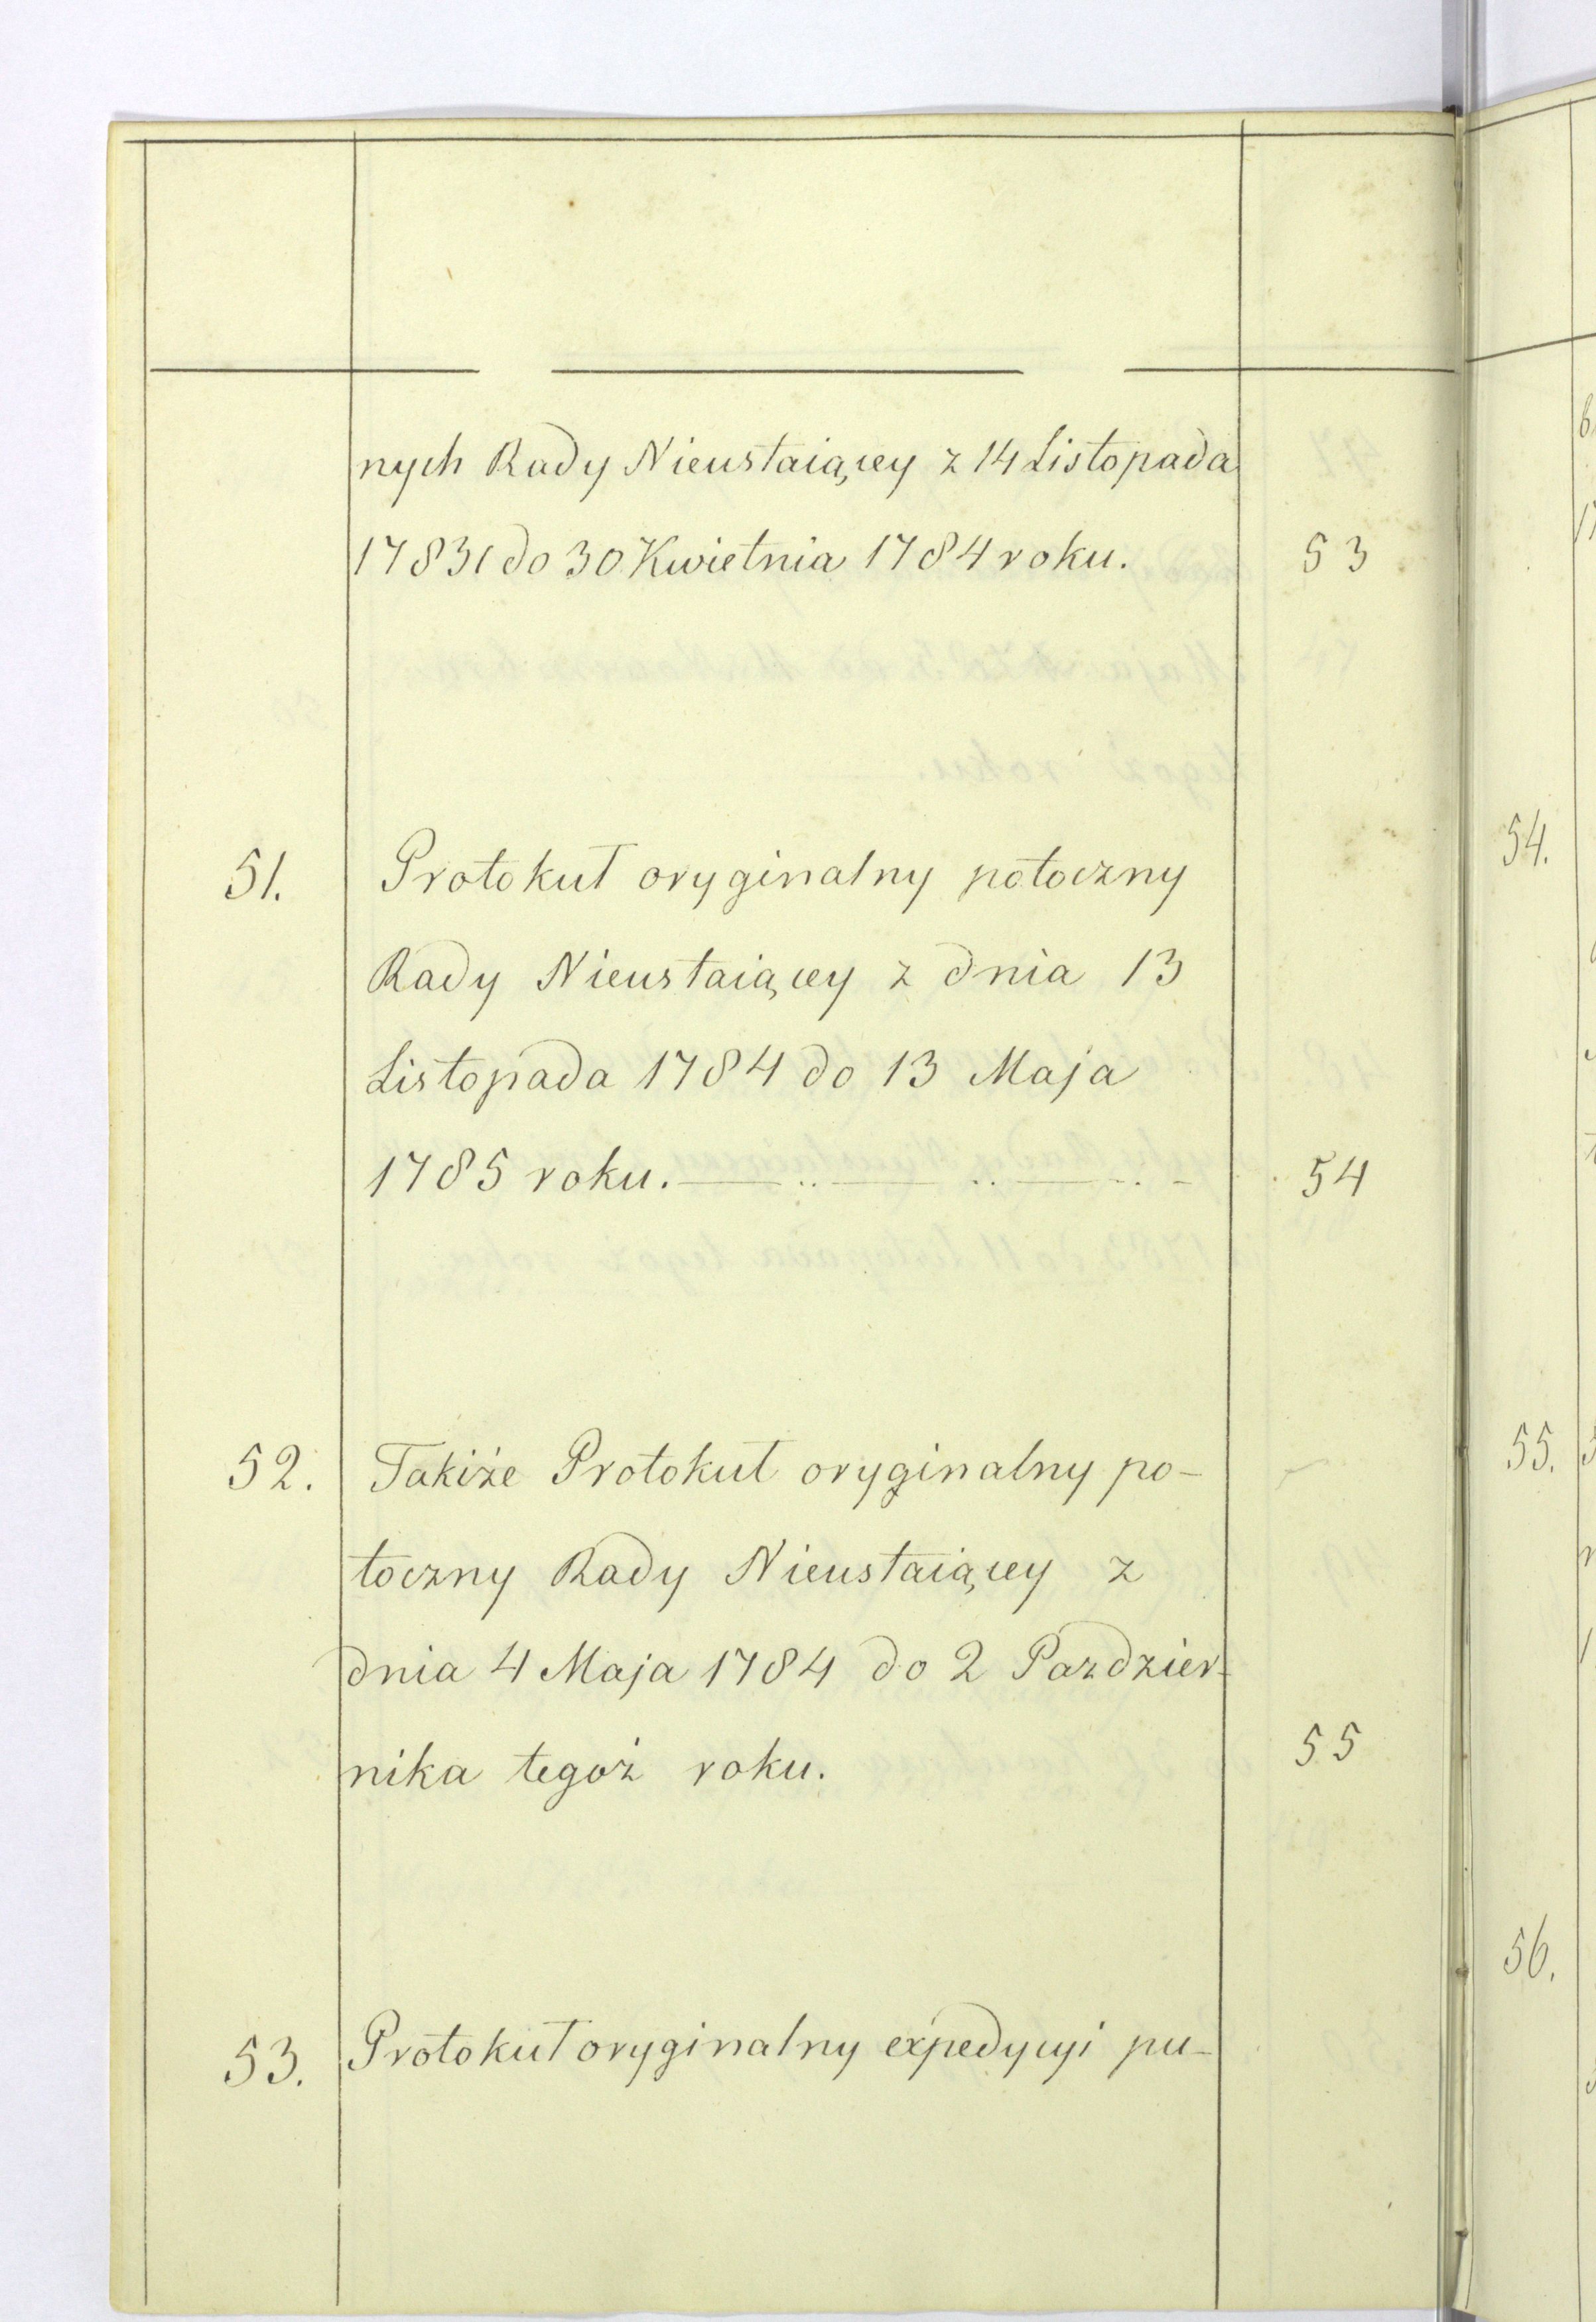 nych Rady Nieustaiącey z 14 Listopada
1783 do 30 Kwietnia 1784 roku. 53
51. Protokuł oryginalny potoczny
Rady Nieustaiącey z dnia 13
Listopada 1784 do 13 Maja
1785 roku. 54
52. Takiże Protokuł oryginalny po-
toczny Rady Nieustaiącey z
dnia 4 Maja 1784 do 2 Pazdzier-
nika tegoż roku. 55
53. Protokuł oryginalny expedycyi pu-
54.
55.
56.